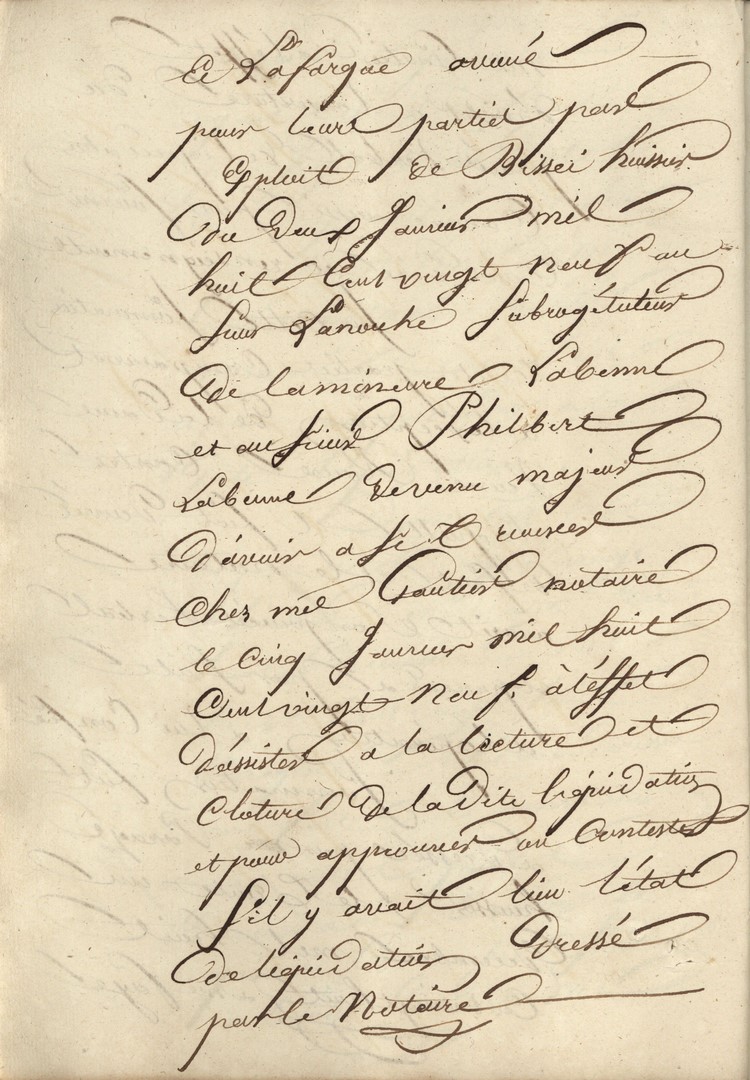 Et Lafargue avoué
pour leurs parties par
Exploit de Bissei huissier
du deux Janvier mil
huit Cent vingt neuf au
sieur Lanouhe Subrogétuteur
de la mineure Labenne
et au sieur Philbert
Labenne devenu majeur
d'avoir a se trouver
Chez me Gautier notaire
le Cinq Janvier mil huit
Cent vingt neuf, à l'éffet
d'assister a la lecture et
cloture de ladite liquidation
et pour approuver ou Contester
s'il y avait lieu l'état
de liquidation Dressé
par le Notaire